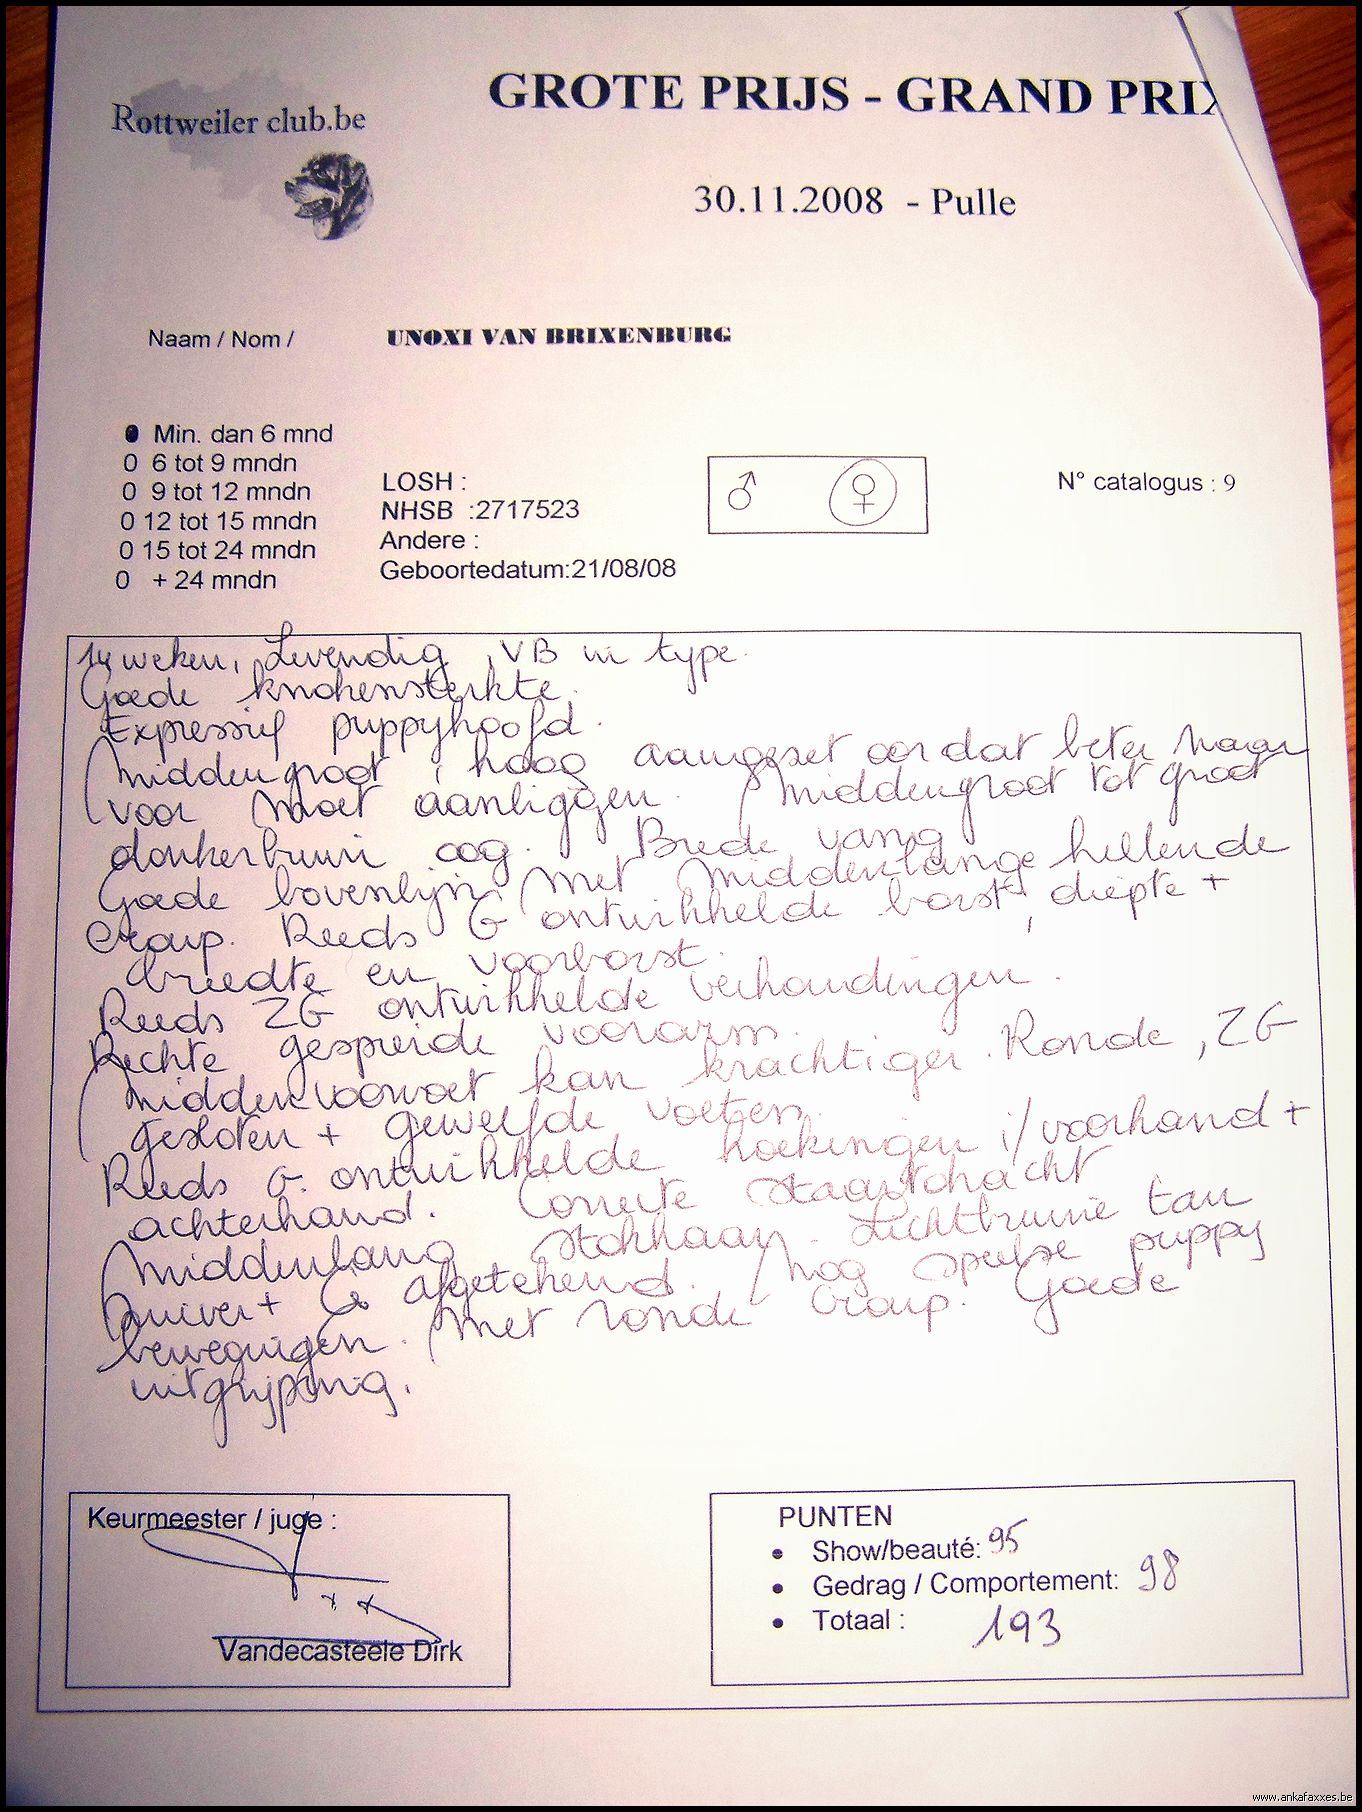 Rottweiler club.be
GROTE PRIJS - GRAND PRIX
30.11.2008 - Pulle
Naam / Nom /
UNOXI VAN BRIXENBURG
Min. dan 6 mnd
0 6 tot 9 mndn
0 9 tot 12 mndn
0 12 tot 15 mndn
0 15 tot 24 mndn
0 + 24 mndn
LOSH :
NHSB :2717523
Andere :
Geboortedatum:21/08/08
♂ ♀
N° catalogus : 9
14 weken, Levendig, VB in type.
Goede knokensterkte.
Expressief puppyhoofd.
Middengroot, hoog aangezet oor dat beter naar
voor moet aanliggen. Middengroot tot groot
donkerbruin oog. Brede vang
Goede bovenlijn met middenlange hellende
croup. Reeds G ontwikkelde borst, diepte +
breedte en voorborst.
Reeds ZG ontwikkelde verhoudingen.
Rechte gespreide voorarm.
Middenvoorvoet kan krachtiger. Ronde, ZG
gesloten + gewelfde voeten.
Reeds G. ontwikkelde hoekingen i/voorhand +
achterhand. Correcte staartdracht
Middenlang stokhaar. Lichtbruine tan
zuiver + G afgetekend. Nog speelse puppy
bewegingen. Met ronde croup. Goede
uitgrijping.
Keurmeester / juge :
Vandecasteele Dirk
PUNTEN
• Show/beauté: 95
• Gedrag / Comportement: 98
• Totaal : 193
www.ankafaxxes.be